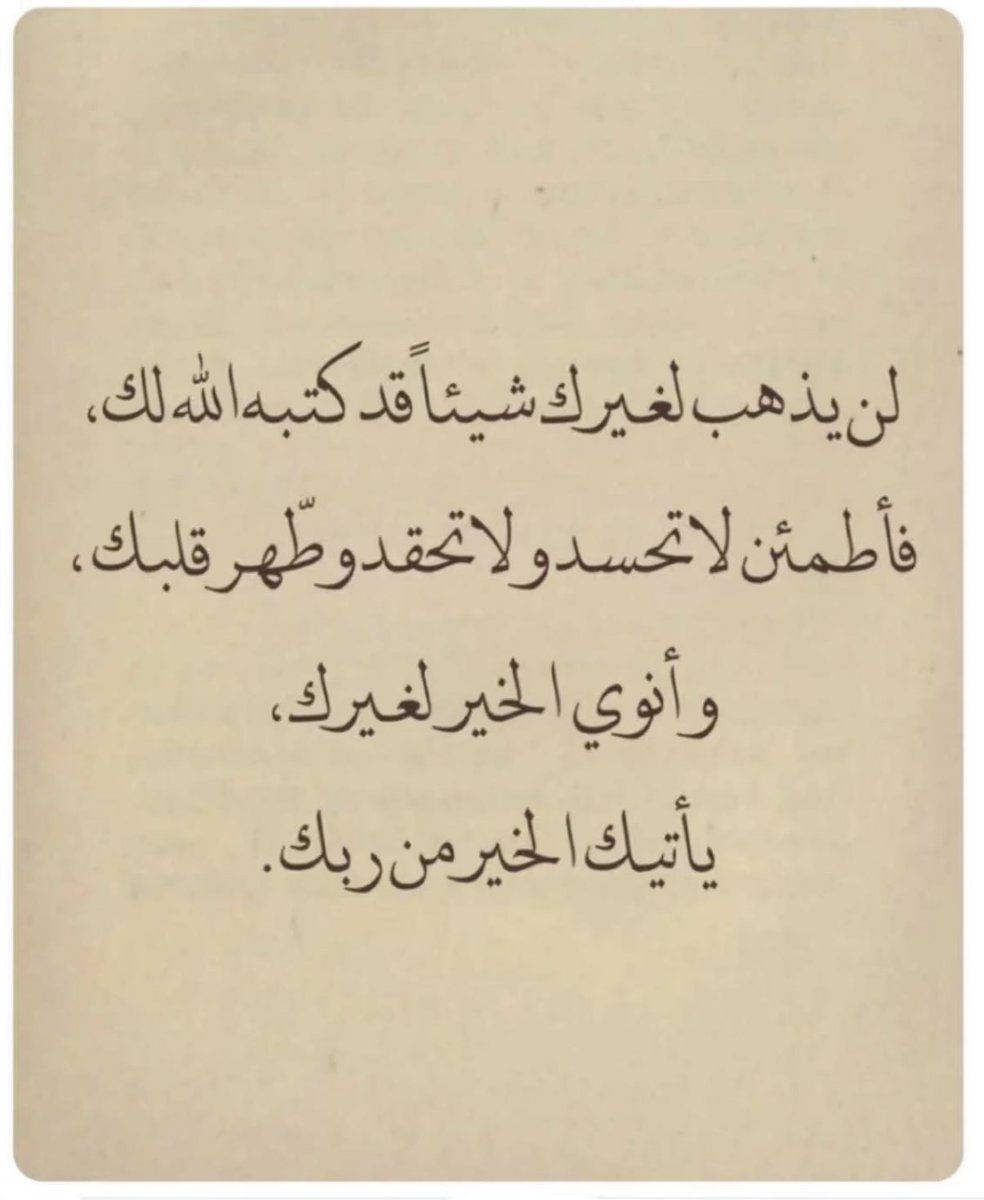 لن يذهب لغيرك شيئاً قد كتبه الله لك،
فأطمئن لا تحسد ولا تحقد وطّهر قلبك،
وأنوي الخير لغيرك،
يأتيك الخير من ربك.